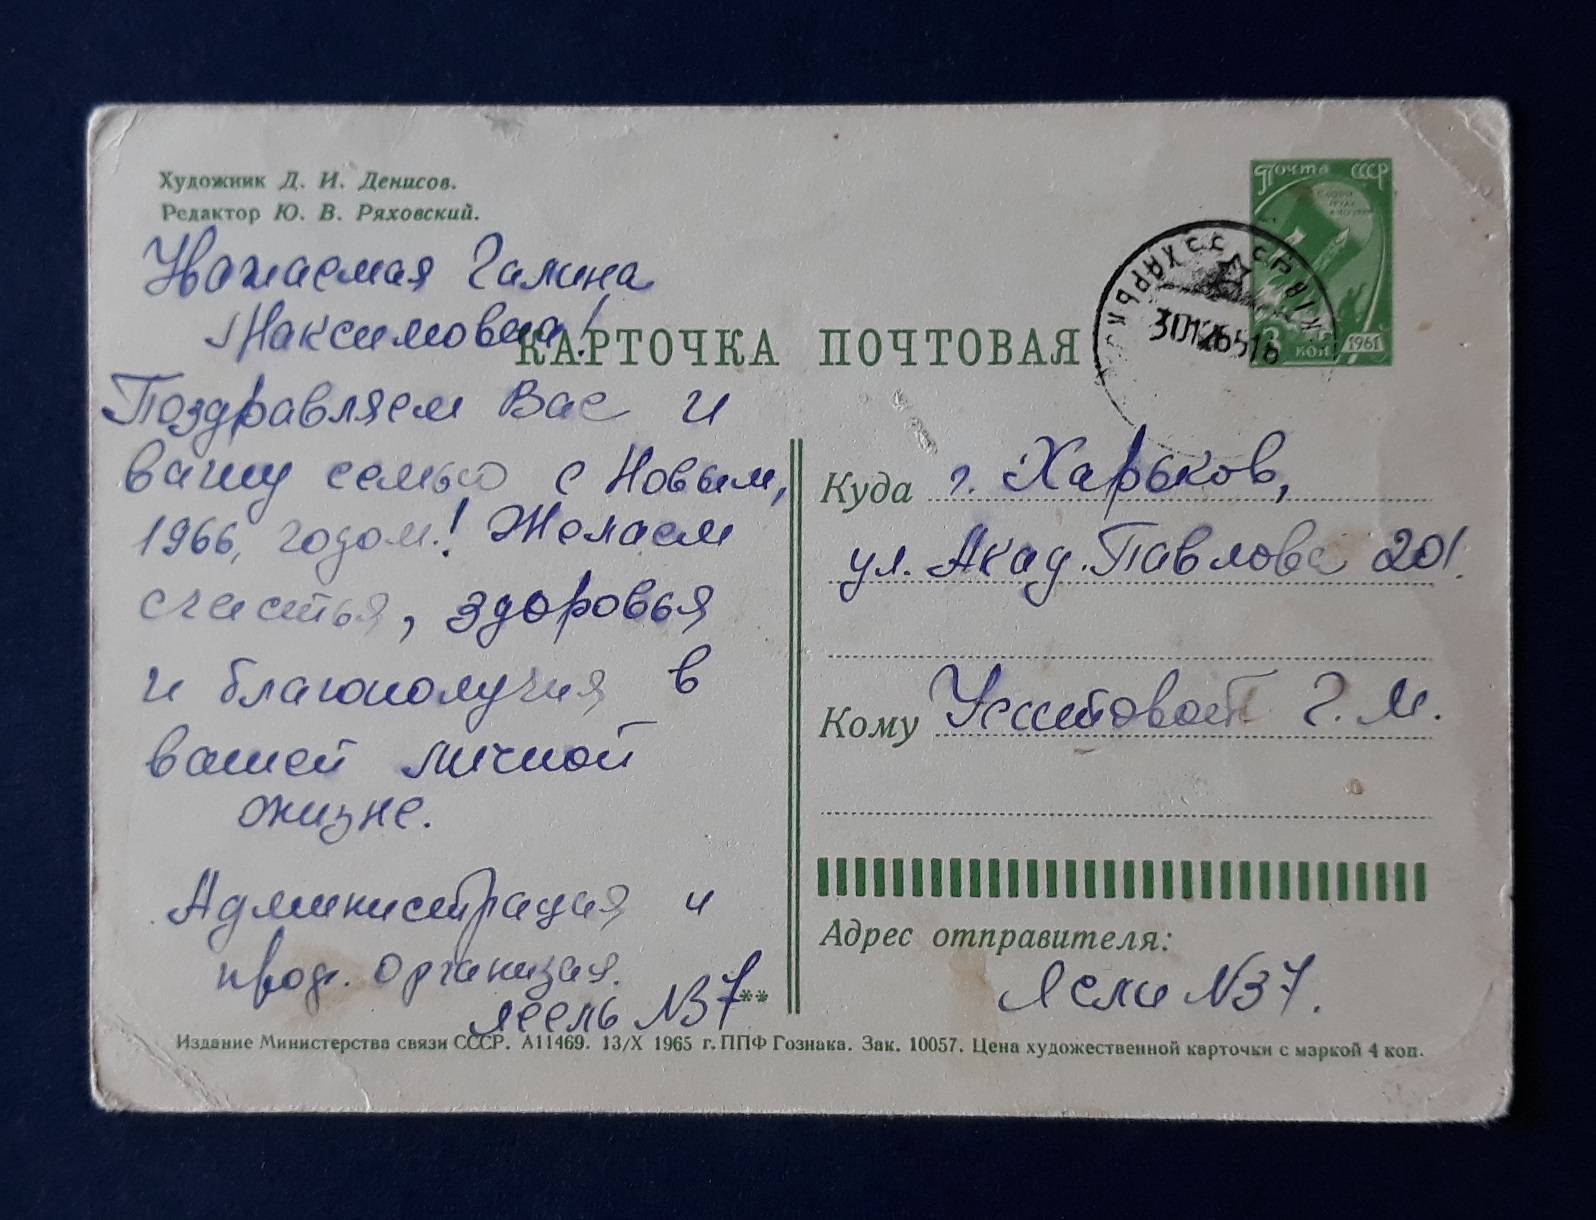 Художник Д. И. Денисов.
Редактор Ю. В. Ряховский.
Уважаемая Галина
Максимовна!
Поздравляем Вас и
вашу семью с Новым,
1966, годом! Желаем
счастья, здоровья
и благополучия в
вашей личной
жизне.
Администрация и
проф. организая.
ясель №37
**
КАРТОЧКА ПОЧТОВАЯ
Почта СССР
3 коп 1961
ХАРЬКОВ
30 12 65 16
Куда г. Харьков,
ул. Акад. Павлова 201.
Кому Г. М.
Адрес отправителя:
Ясли №37.
Издание Министерства связи СССР. А11469. 13/X 1965 г. ППФ Гознака. Зак. 10057. Цена художественной карточки с маркой 4 коп.